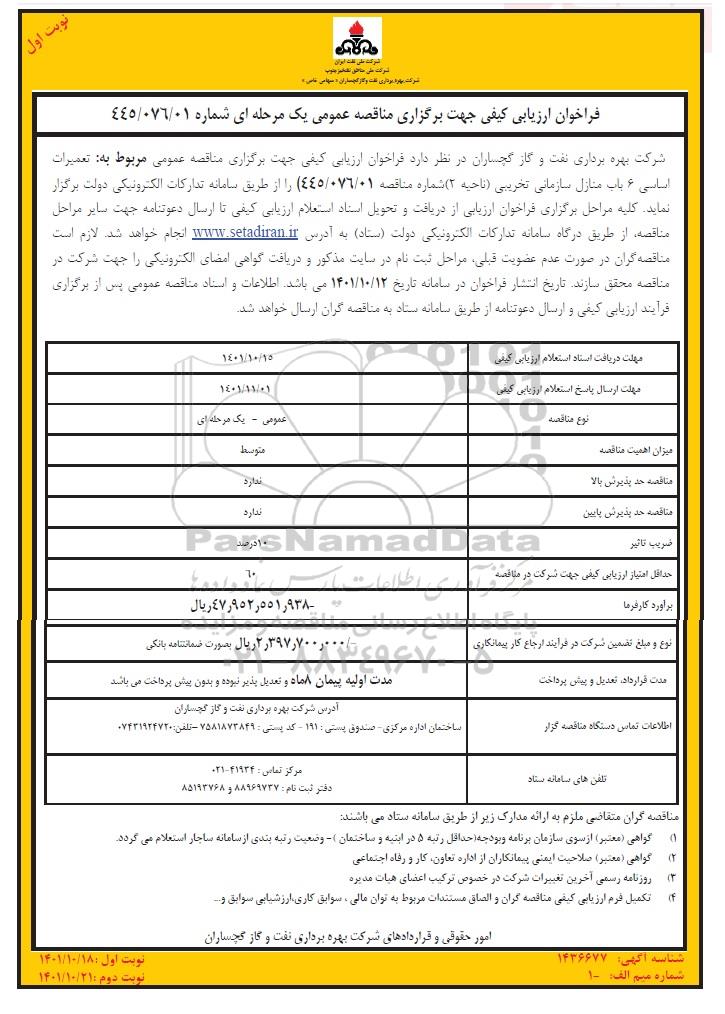 نوبت اول
شرکت ملی نفت ایران
شرکت ملی مناطق نفتخیز جنوب
شرکت بهره برداری نفت وگاز گچساران « سهامی خاص »
فراخوان ارزیابی کیفی جهت برگزاری مناقصه عمومی یک مرحله ای شماره ۴۴۵/۰۷۶/۰۱
شرکت بهره برداری نفت و گاز گچساران در نظر دارد فراخوان ارزیابی کیفی جهت برگزاری مناقصه عمومی مربوط به: تعمیرات
اساسی ۶ باب منازل سازمانی تخریبی (ناحیه ۲)شماره مناقصه ۴۴۵/۰۷۶/۰۱) را از طریق سامانه تدارکات الکترونیکی دولت برگزار
نماید. کلیه مراحل برگزاری فراخوان ارزیابی از دریافت و تحویل اسناد استعلام ارزیابی کیفی تا ارسال دعوتنامه جهت سایر مراحل
مناقصه، از طریق درگاه سامانه تدارکات الکترونیکی دولت (ستاد) به آدرس www.setadiran.ir انجام خواهد شد. لازم است
مناقصه‌گران در صورت عدم عضویت قبلی، مراحل ثبت نام در سایت مذکور و دریافت گواهی امضای الکترونیکی را جهت شرکت در
مناقصه محقق سازند. تاریخ انتشار فراخوان در سامانه تاریخ ۱۴۰۱/۱۰/۱۲ می باشد. اطلاعات و اسناد مناقصه عمومی پس از برگزاری
فرآیند ارزیابی کیفی و ارسال دعوتنامه از طریق سامانه ستاد به مناقصه گران ارسال خواهد شد.
مهلت دریافت اسناد استعلام ارزیابی کیفی ۱۴۰۱/۱۰/۱۵
مهلت ارسال پاسخ استعلام ارزیابی کیفی ۱۴۰۱/۱۱/۰۱
نوع مناقصه عمومی - یک مرحله ای
میزان اهمیت مناقصه متوسط
مناقصه حد پذیرش بالا ندارد
مناقصه حد پذیرش پایین ندارد
ضریب تاثیر ۱۰درصد
حداقل امتیاز ارزیابی کیفی جهت شرکت در مناقصه ۶۰
برآورد کارفرما ۴۷٫۹۵۲٫۵۵۱٫۹۳۸-ریال
نوع و مبلغ تضمین شرکت در فرآیند ارجاع کار پیمانکاری ۲٫۳۹۷٫۷۰۰٫۰۰۰/-ریال بصورت ضمانتنامه بانکی
مدت قرارداد، تعدیل و پیش پرداخت مدت اولیه پیمان ۸ماه و تعدیل پذیر نبوده و بدون پیش پرداخت می باشد
اطلاعات تماس دستگاه مناقصه گزار آدرس شرکت بهره برداری نفت و گاز گچساران
ساختمان اداره مرکزی- صندوق پستی : ۱۹۱ - کد پستی : ۷۵۸۱۸۷۳۸۴۹ –تلفن:۰۷۴۳۱۹۲۴۷۲۰
تلفن های سامانه ستاد مرکز تماس : ۴۱۹۳۴-۰۲۱
دفتر ثبت نام : ۸۸۹۶۹۷۳۷ و ۸۵۱۹۳۷۶۸
مناقصه گران متقاضی ملزم به ارائه مدارک زیر از طریق سامانه ستاد می باشند:
۱) گواهی (معتبر) ازسوی سازمان برنامه وبودجه(حداقل رتبه ۵ در ابنیه و ساختمان )- وضعیت رتبه بندی ازسامانه ساجار استعلام می گردد.
۲) گواهی (معتبر) صلاحیت ایمنی پیمانکاران از اداره تعاون، کار و رفاه اجتماعی
۳) روزنامه رسمی آخرین تغییرات شرکت در خصوص ترکیب اعضای هیات مدیره
۴) تکمیل فرم ارزیابی کیفی مناقصه گران و الصاق مستندات مربوط به توان مالی ، سوابق کاری،ارزشیابی سوابق و...
امور حقوقی و قراردادهای شرکت بهره برداری نفت و گاز گچساران
شناسه آگهی: ۱۴۳۶۶۷۷ نوبت اول :۱۴۰۱/۱۰/۱۸
شماره میم الف: ۱- نوبت دوم :۱۴۰۱/۱۰/۲۱
ParsNamadData
مرکز فرآوری اطلاعات پارس نماد داده ها
پایگاه اطلاع رسانی مناقصه و مزایده
۰۲۱-۸۸۳۴۹۶۷۰-۵